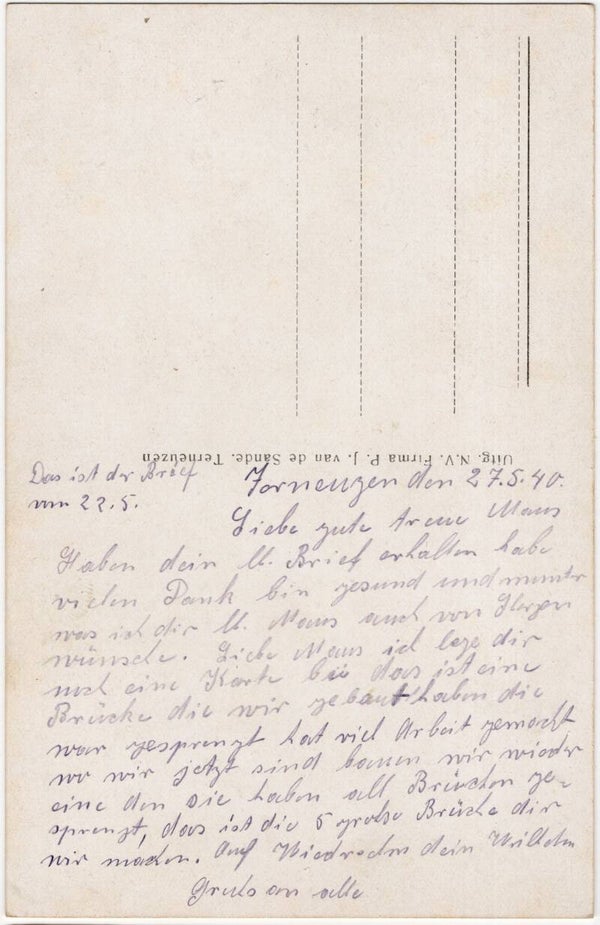 Uitg. N.V. Firma P. J. van de Sande. Terneuzen
Das ist der Brief
vom 22.5.
Terneuzen den 27.5.40.
Liebe gute treue Maus
Haben dein lb. Brief erhalten habe
vielen Dank bin gesund und munter
was ich dir lb. Maus auch von Herzen
wünsche. Liebe Maus ich lege dir
noch eine Karte bei das ist eine
Brücke die wir gebaut haben die
war gesprengt hat viel Arbeit gemacht
wo wir jetzt sind bauen wir wieder
eine den sie haben all Brücken ge-
sprengt, das ist die 5 große Brücke die
wir machen. Auf Wiedersehn dein Wilhelm
Gruß an alle